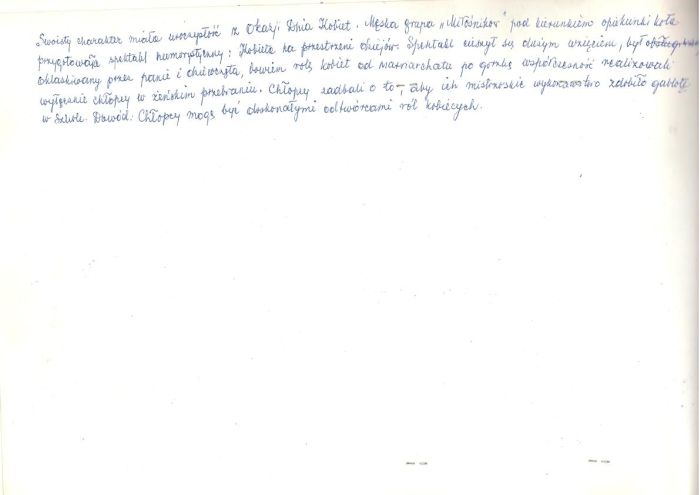 Swoisty charakter miała uroczystość z Okazji Dnia Kobiet. Męska grupa „Miłośników" pod kierunkiem opiekunki koła
przygotowała spektakl humorystyczny: Kobieta na przestrzeni dziejów. Spektakl cieszył się dużym wzięciem, był
oklaskiwany przez panie i dziewczęta, bowiem rolę kobiet od matriarchatu po gorzką współczesność realizowali
wyłącznie chłopcy w żeńskim przebraniu. Chłopcy zadbali o to, aby ich mistrzowskie wykonawstwo zdobiło gablotę
w szkole. Dowód: Chłopcy mogą być doskonałymi odtwórcami ról kobiecych.